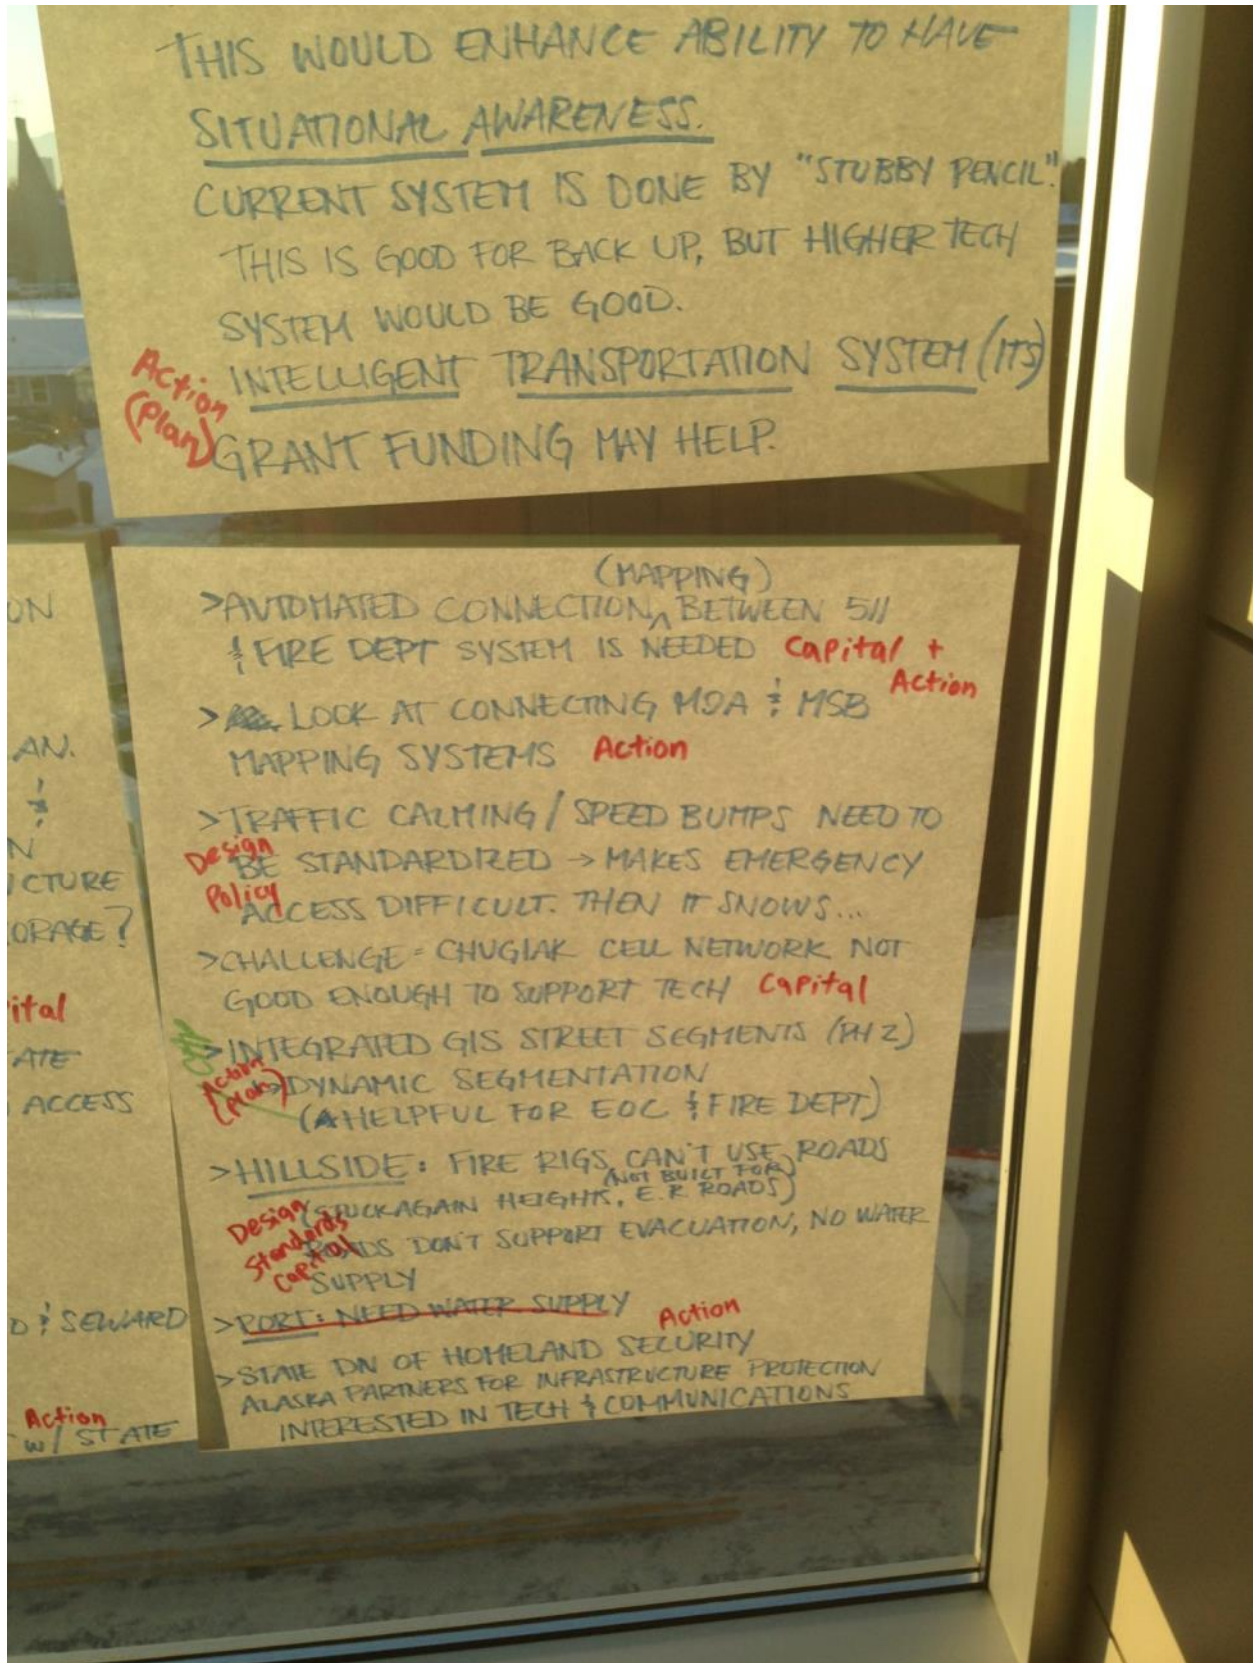 THIS WOULD ENHANCE ABILITY TO HAVE
SITUATIONAL AWARENESS.
CURRENT SYSTEM IS DONE BY "STUBBY PENCIL".
THIS IS GOOD FOR BACK UP, BUT HIGHER TECH
SYSTEM WOULD BE GOOD.
Action
(Plan)
INTELLIGENT TRANSPORTATION SYSTEM (ITS)
GRANT FUNDING MAY HELP.
ON
AN.
&
N
CTURE
ORAGE?
ital
ATE
ACCESS
D & SEWARD
Action
w/ STATE
(MAPPING)
>AUTOMATED CONNECTION ^ BETWEEN 511
& FIRE DEPT SYSTEM IS NEEDED Capital +
Action
> LOOK AT CONNECTING MOA & MSB
MAPPING SYSTEMS Action
>TRAFFIC CALMING / SPEED BUMPS NEED TO
Design
BE STANDARDIZED → MAKES EMERGENCY
Policy
ACCESS DIFFICULT. THEN IT SNOWS...
>CHALLENGE = CHUGIAK CELL NETWORK NOT
GOOD ENOUGH TO SUPPORT TECH Capital
>INTEGRATED GIS STREET SEGMENTS (PH 2)
Action
(Plan)
DYNAMIC SEGMENTATION
(HELPFUL FOR EOC & FIRE DEPT)
>HILLSIDE: FIRE RIGS CAN'T USE ROADS
(NOT BUILT FOR)
(STUCKAGAIN HEIGHTS, E.R ROADS)
Design
Standards
Capital
ROADS DON'T SUPPORT EVACUATION, NO WATER
SUPPLY
>PORT: NEED WATER SUPPLY
Action
>STATE DIV OF HOMELAND SECURITY
ALASKA PARTNERS FOR INFRASTRUCTURE PROTECTION
INTERESTED IN TECH & COMMUNICATIONS